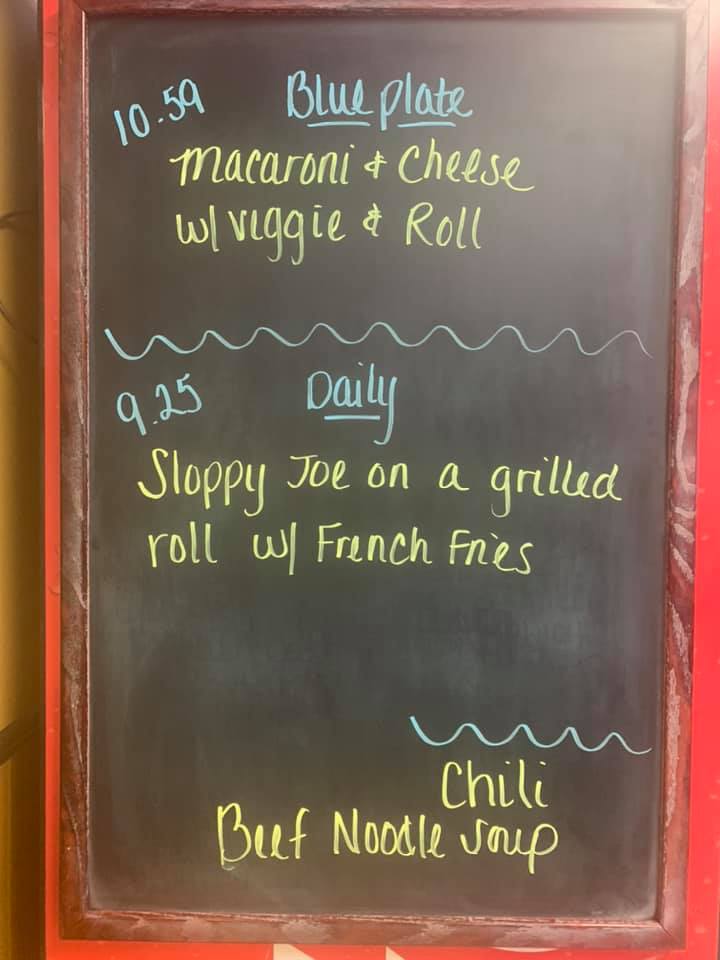 10.59 Blue plate
Macaroni & Cheese
w/ veggie & Roll
9.25 Daily
Sloppy Joe on a grilled
roll w/ French Fries
Chili
Beef Noodle soup